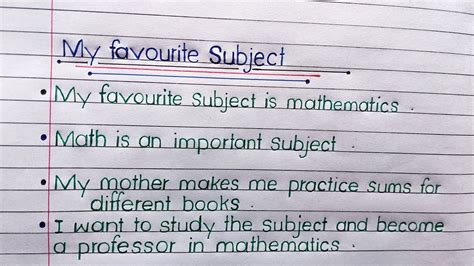 My favourite Subject
• My favourite Subject is mathematics .
• Math is an important subject .
• My mother makes me practice sums for
different books .
• I want to study the subject and become
a professor in mathematics .